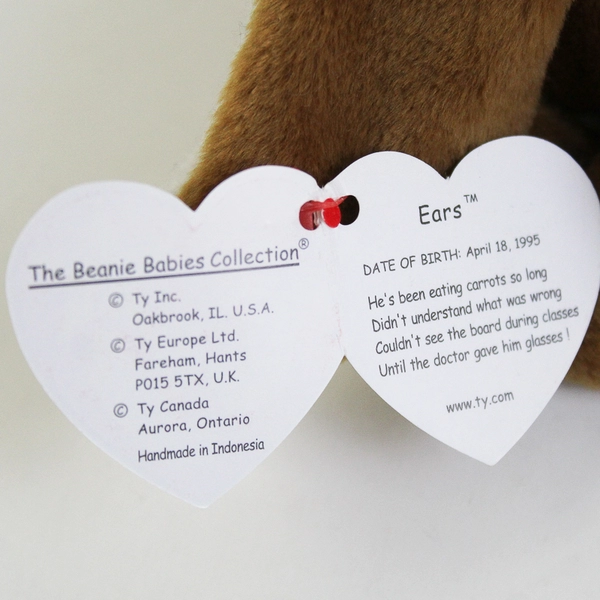 The Beanie Babies Collection®
© Ty Inc.
Oakbrook, IL. U.S.A.
© Ty Europe Ltd.
Fareham, Hants
PO15 5TX, U.K.
© Ty Canada
Aurora, Ontario
Handmade in Indonesia
Ears™
DATE OF BIRTH: April 18, 1995
He's been eating carrots so long
Didn't understand what was wrong
Couldn't see the board during classes
Until the doctor gave him glasses !
www.ty.com